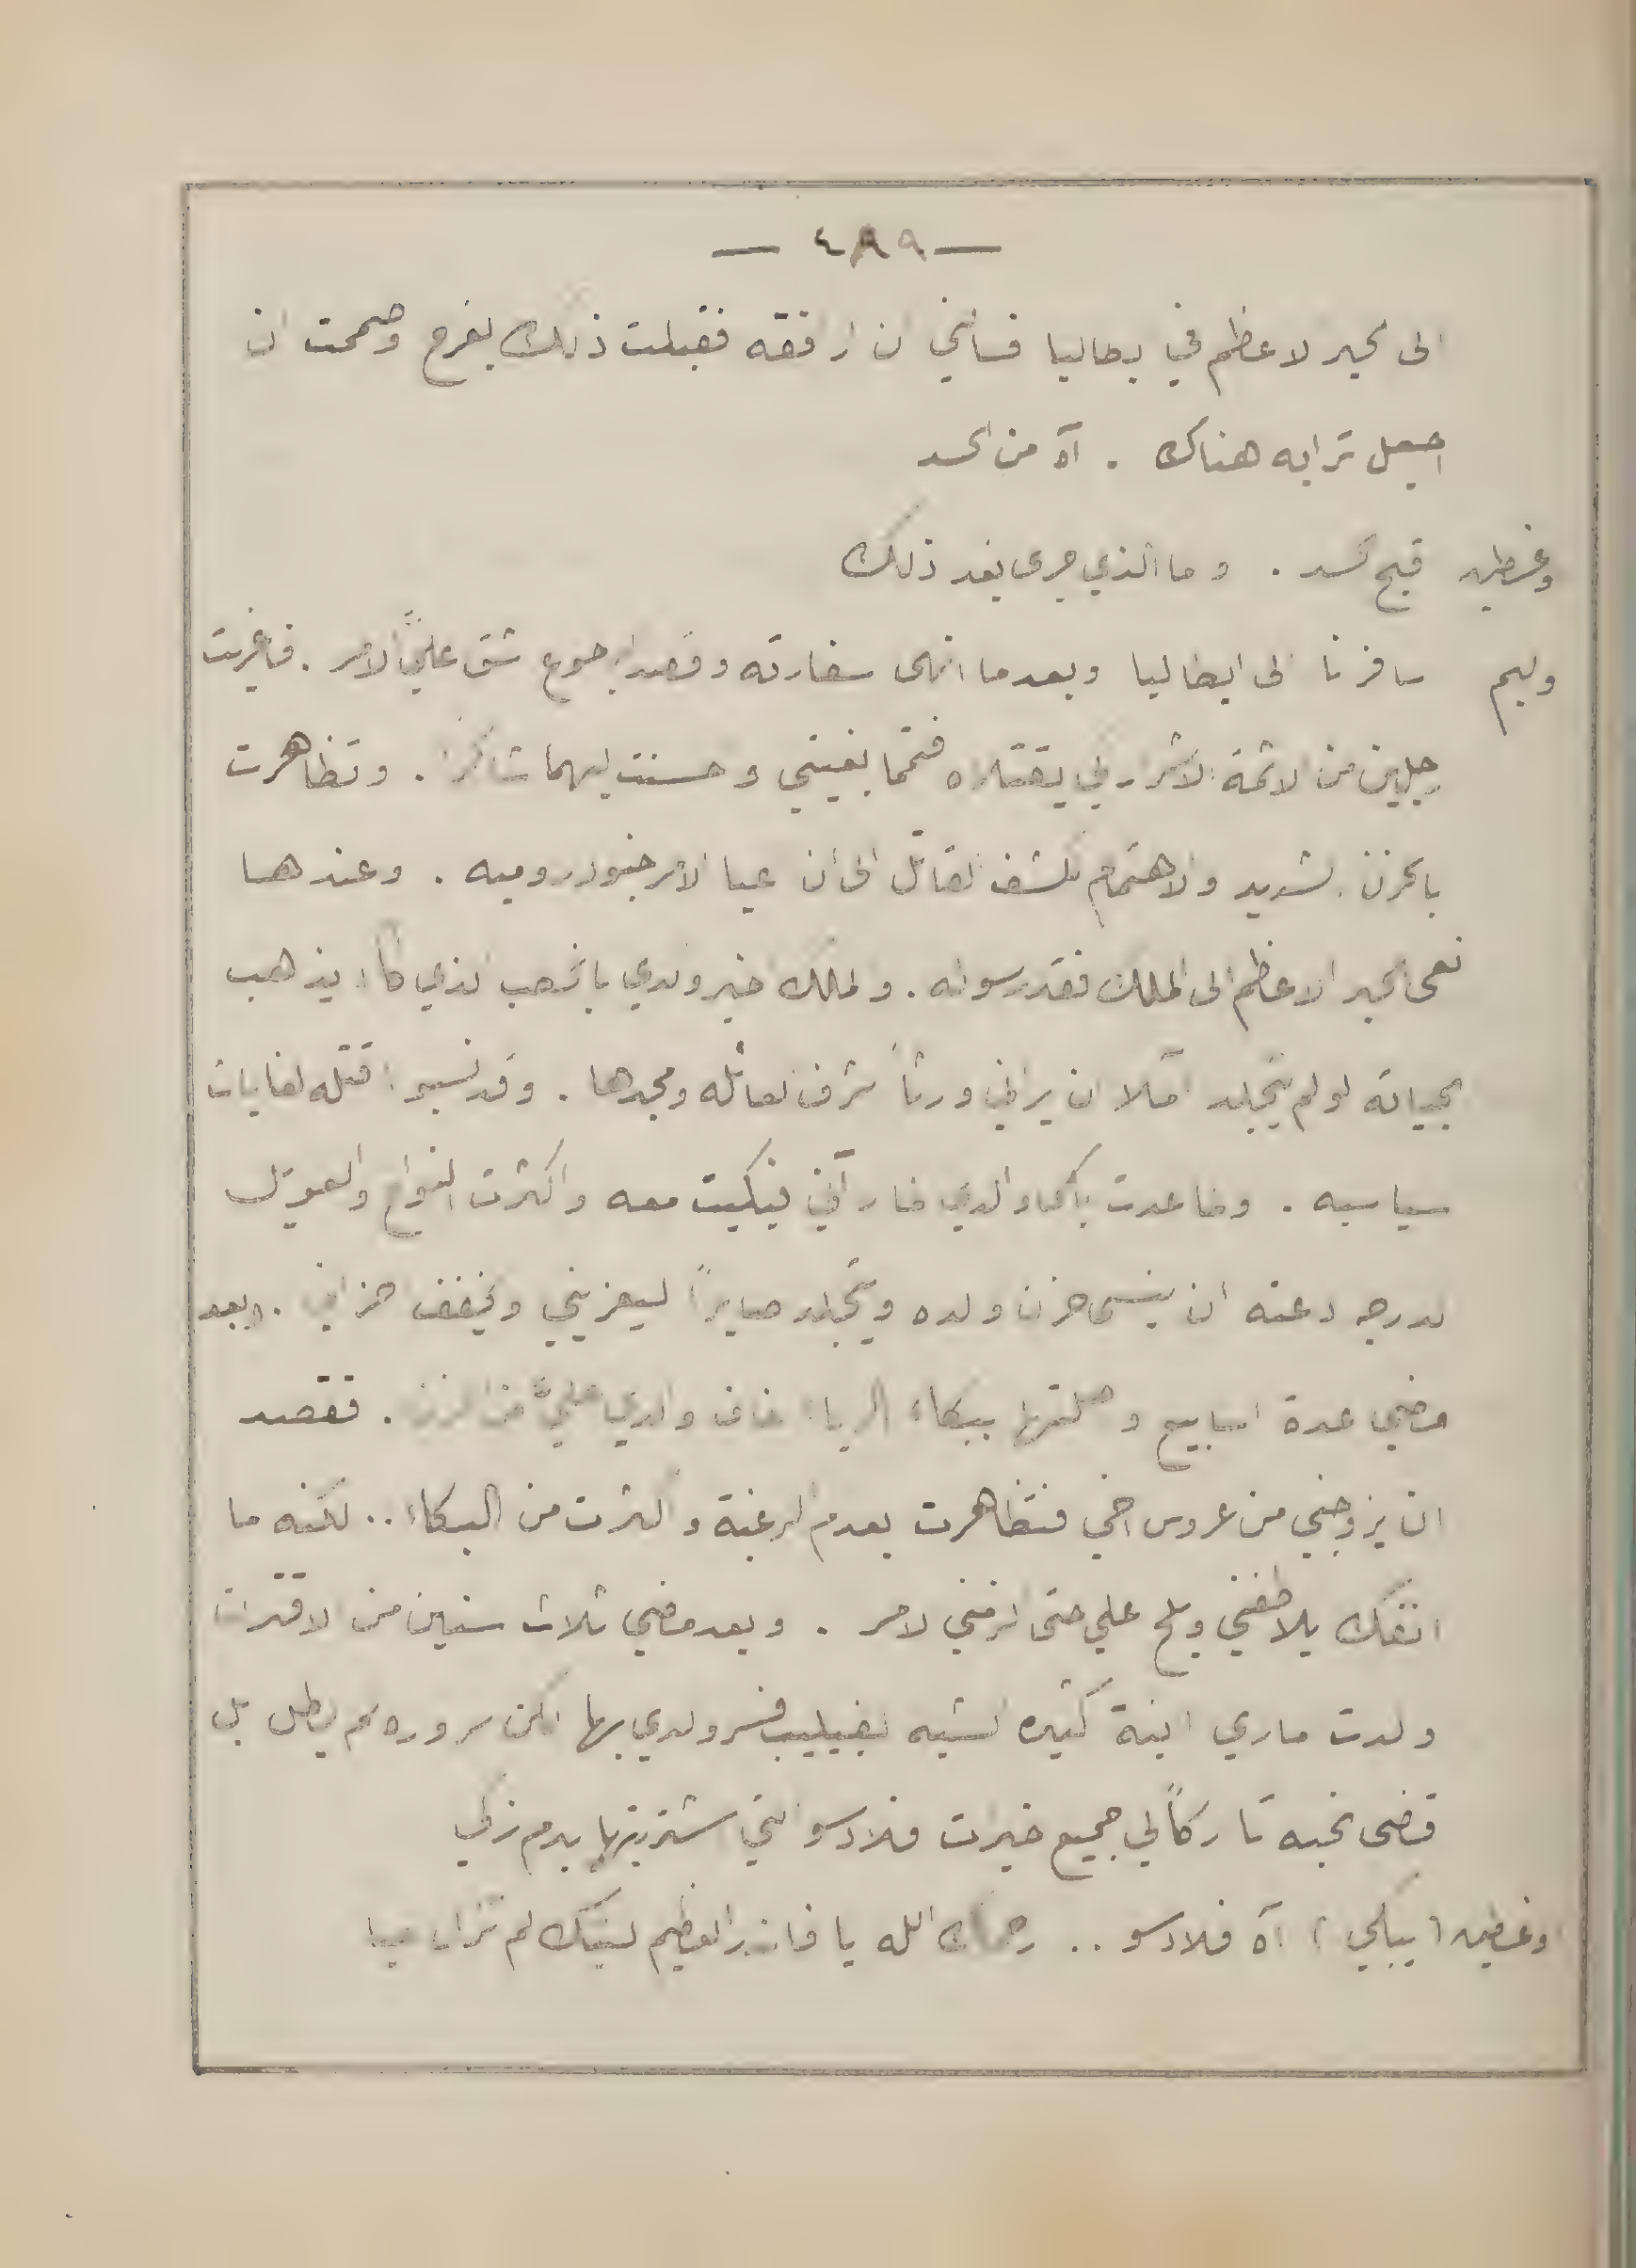 — ٤٨٩ —
الى الحبر الاعظم في ايطاليا فسالني ان ارافقه فقبلت ذلك بفرح وصممت ان
اجعل ترابه هناك . آه من الحسد
وغسطين قبح الحسد . وما الذي جرى بعد ذلك
وليم سافرنا الى ايطاليا وبعدما انهى سفارته وقصد الرجوع شق عليَّ الامر . فاغريت
رجلين من الائمة الاشرار لكي يقتلاه فتمما بغيتي وحسنت ليهما شاكرا . وتظاهرت
بالحزن الشديد والاهتمام لكشف القاتل الى أن عيا الامر جنود رومية . وعندها
نعى الحبر الاعظم الى الملك فقد رسوله . والملك اخبر والدي بالخبر الذي كاد يذهب
بحياته لو لم يتجلد آملا ان يراني وارثاً شرف العائلة ومجدها . وقد نسبوا قتله لغايات
سياسيه . وما عدت باكيا والدي فما رآني فبكيت معه واكثرت النواح والعويل
لدرجه دعته ان ينسى حزن ولده ويتجلد صابراً ليعزيني ويخفف احزاني . وبعد
مضي عدة اسابيع وصلتها ببكاء الرياء خاف والدي عليَّ من الحزن . فقصد
ان يزوجني من عروس اخي فتظاهرت بعدم الرغبة واكثرت من البكاء .. لكنه ما
انفك يلاطفني ويلح علي حتى الزمني الامر . وبعد مضي ثلاث سنين من الاقتران
ولدت ماري ابنة كثيره الشبه بفيليب فسر والدي بها لكن سروره لم يطل بل
قضى نحبه تاركاً لي جميع خيرات فلادسو التي اشتريتها بدم زكي
اوغسطين (يبكي) آه فلادسو .. رحماك الله يا فاندر العظيم ليتك لم تزل حيا